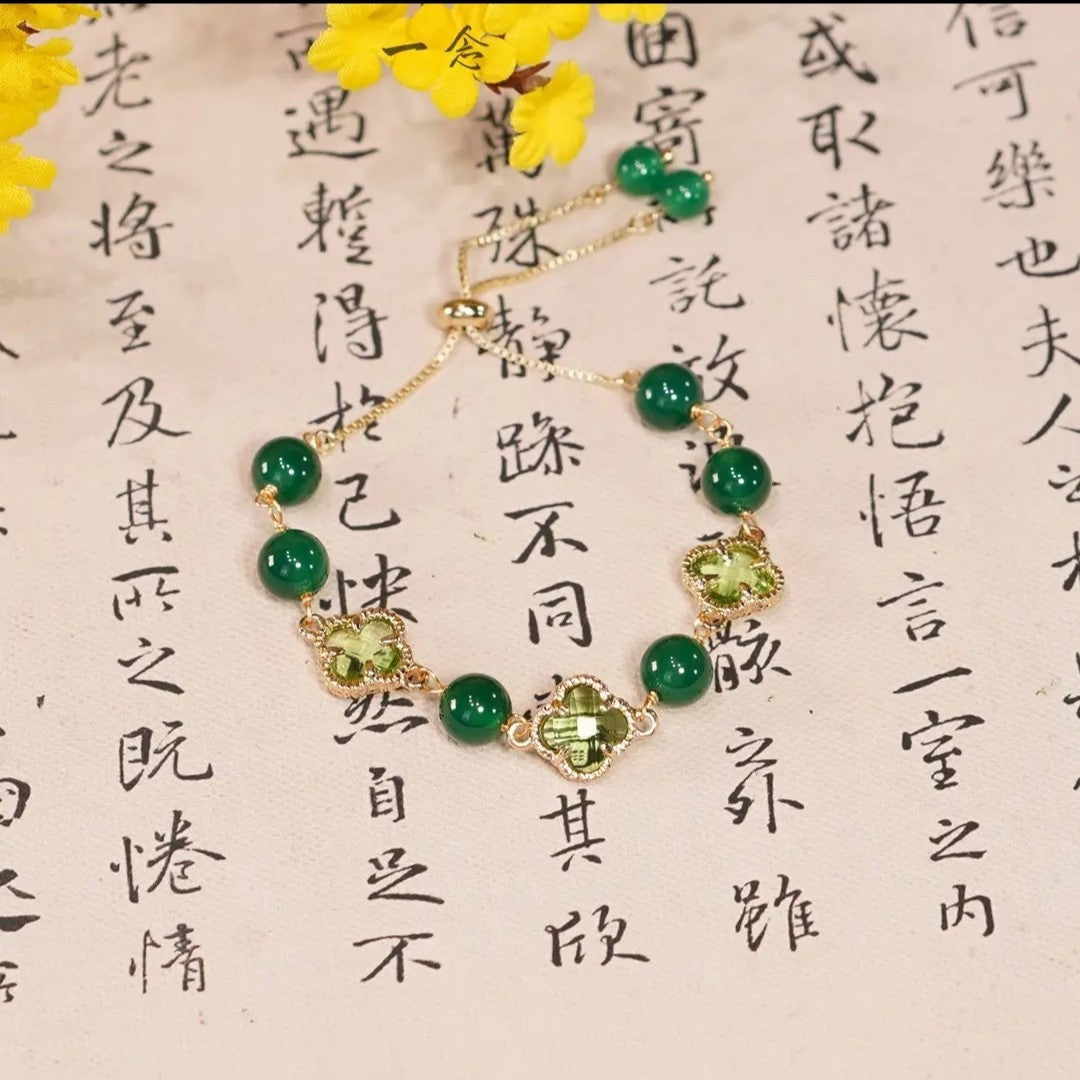 一念
信可樂也夫人
或取諸懷抱悟言一室之內
因寄託放骸之外雖
萬殊靜躁不同其欣
遇暫得於己快然自足不
老之將至及其所之既惓情